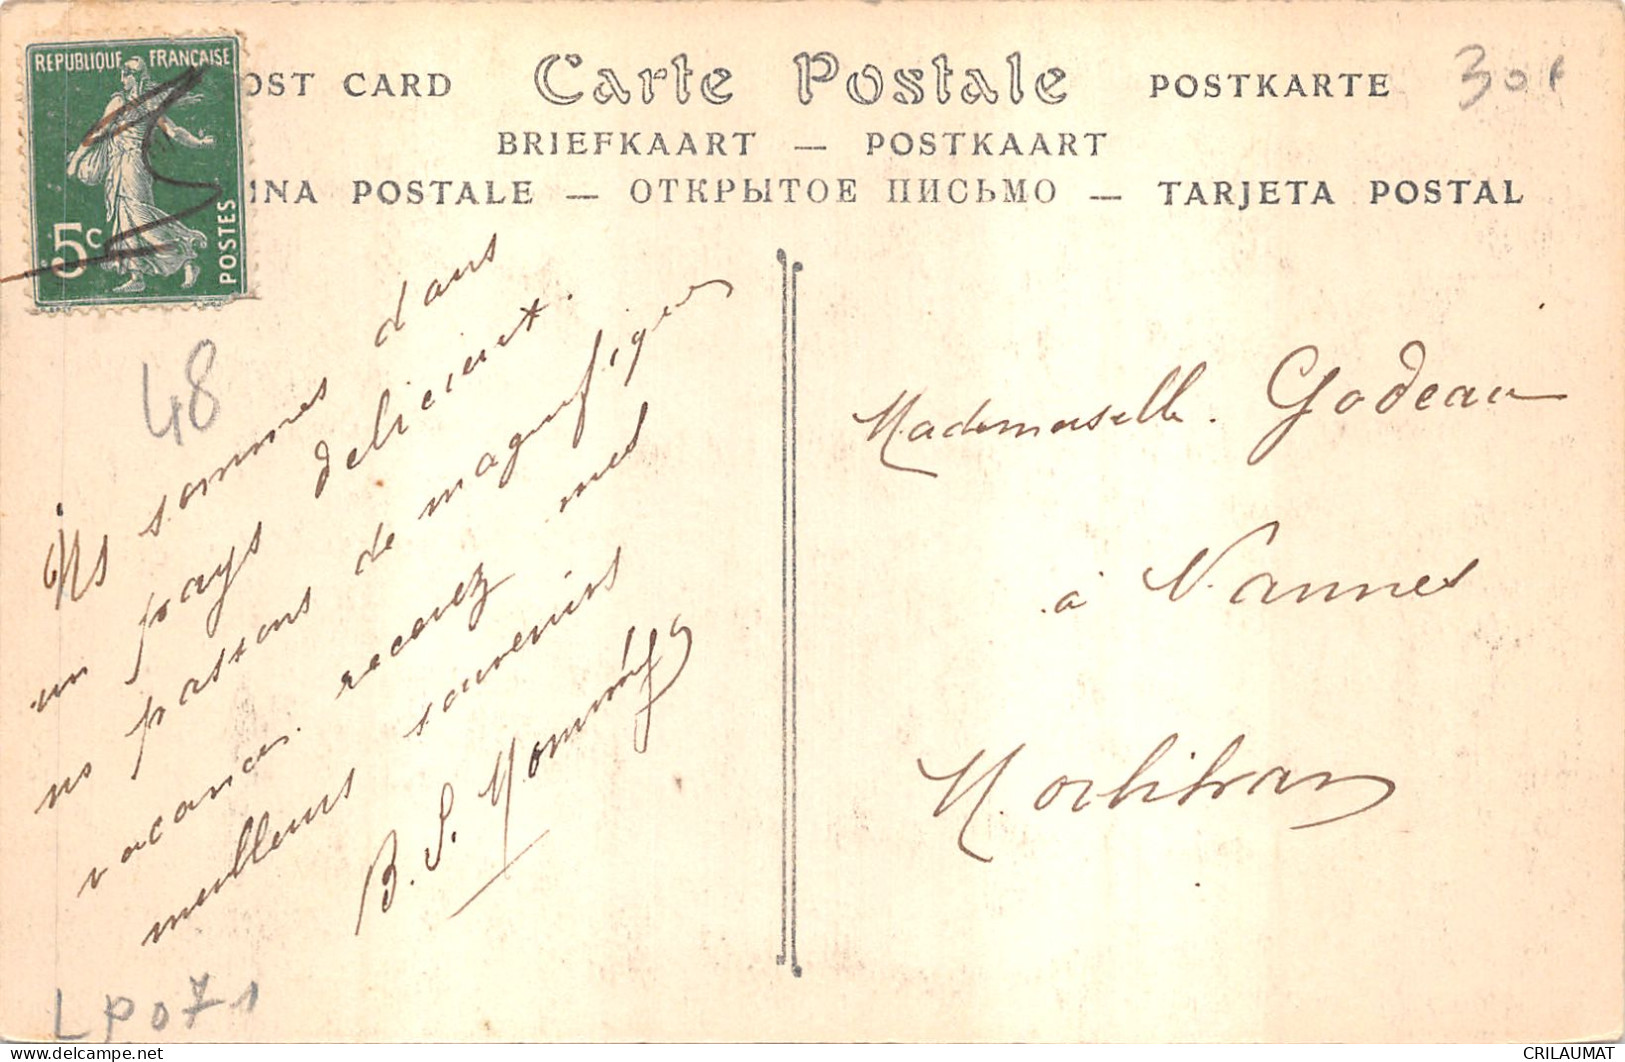 REPUBLIQUE FRANÇAISE
5c
POSTES
OST CARD Carte Postale POSTKARTE
30f
BRIEFKAART — POSTKAART
INA POSTALE — ОТКРЫТОЕ ПИСЬМО — TARJETA POSTAL
48
Ns sommes dans
un pays delicieux.
ns passons de magnifiques
vacances. recevez mes
meilleurs souvenirs
B. S.
LP071
Mademoiselle. Godeau
à Vannes
Morbihan
CRILAUMAT